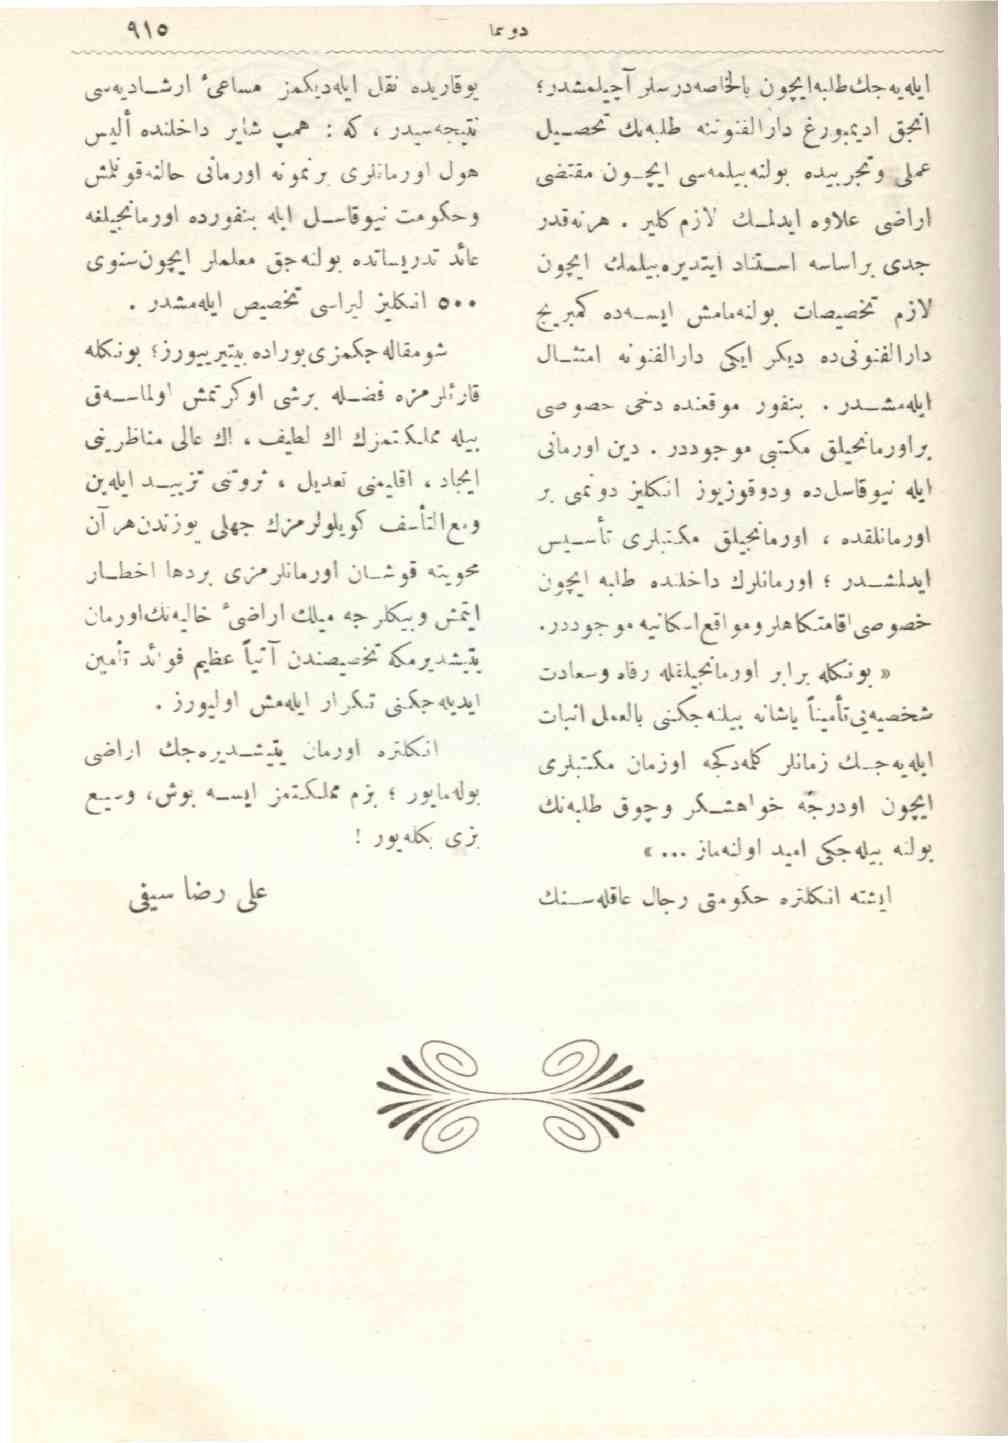 دوتما
٩١٥
ایله‌یه‌جك طلبه ایچون بالخاصه درسلر آچیلمشدر؛
انجق ادیمبورغ دارالفنوننه طلبه‌نك تحصـیل
عملی وتجربیده بولنه‌بیلمه‌سی ایچـون مقتضی
اراضی علاوه ایدلمـك لازم کلیر . هر نه‌قدر
جدی بر اساسه اسـتناد ایتدیره‌بیلمك ایچون
لازم تخصیصات بولنه‌مامش ایسـه‌ده کمبریج
دارالفنونی‌ده دیکر ایکی دارالفنونه امتثـال
ایله‌مشـدر . بنفور موقعنده دخی خصوصی
بر اورمانجیلق مکتبی موجوددر . دین اورمانی
ایله نیوقاسل‌ده ودوقوزیوز انکلیز دونمی بر
اورمانلقده ، اورمانجیلق مکتبلری تأسـیس
ایدلمشـدر ؛ اورمانلرك داخلنده طلبه ایچون
خصوصی اقامتکاهلر ومواقع اسکانیه موجوددر.
« بونکله برابر اورمانجیلقله رفاه وسعادت
شخصیه‌یی تأمیناً یاشانه بیلنه‌جکنی بالعمل اثبات
ایله‌یه‌جـك زمانلر کلمه‌دکجه اورمان مکتبلری
ایچون اودرجه خواهشـکر وچوق طلبه‌نك
بولنه بیله‌جکی امید اولنه‌ماز ... »
ایشته انکلتره حکومتی رجال عاقله‌سـنك
یوقاریده نقل ایله‌دیکمز مساعیٔ ارشـادیه‌سی
نتیجه‌سیدر ، که : همپ شایر داخلنده ألیس
هول اورمانلری بر نمونه اورمانی حالنه‌قونلمش
وحکومت نیوقاسـل ایله بنفورده اورمانجیلغه
عائد تدریساتده بولنه‌جق معلملر ایچون سنوی
٥٠٠ انکلیز لیراسی تخصیص ایله‌مشدر .
شو مقاله‌جکمزی بوراده بیتیرییورز؛ بونکله
قارئلرمزه فضـله برشی اوکرتمش اولماسـه‌ق
بیله مملکتمزك اك لطیف ، اك عالی مناظرینی
ایجاد ، اقلیمنی تعدیل ، ثروتنی تزییـد ایله‌ین
ومع‌التأسف کویلولرمزك جهلی یوزندن هر آن
محویته قوشـان اورمانلرمزی بردها اخطـار
ایتمش وبیکلرجه میللك اراضیٔ خالیه‌نك اورمان
یتیشدیرمکه تخصیصندن آتیاً عظیم فوائد تأمین
ایدیله‌جکنی تکرار ایله‌مش اولیورز .
انکلتره اورمان یتیشـدیره‌جك اراضی
بوله‌مایور ؛ بزم مملکتمز ایسـه بوش، وسیع
بزی بکله‌یور !
علی رضا سیفی